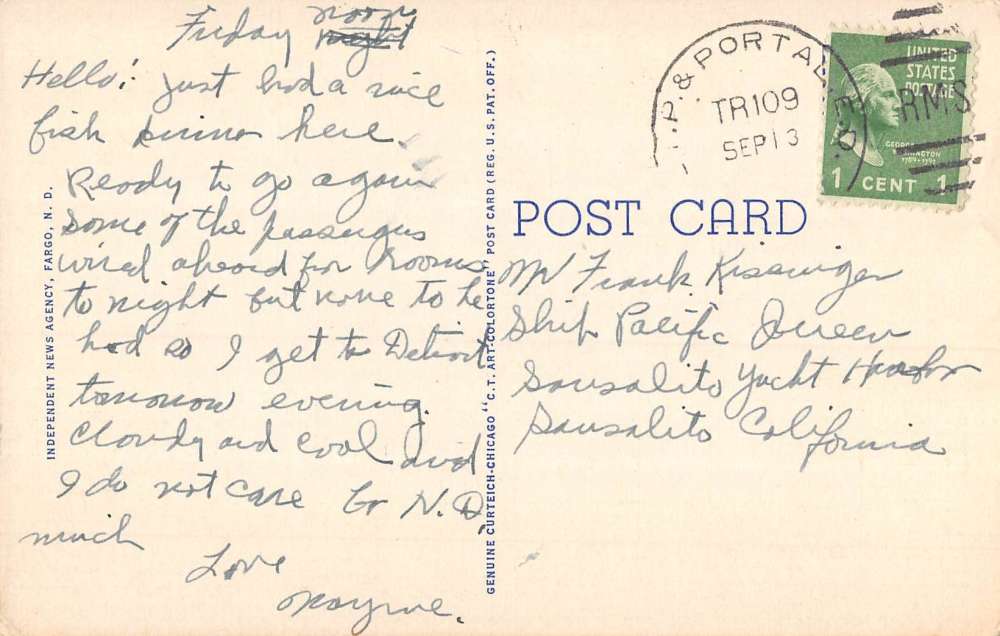 Friday noon
night
Hello! just had a nice
fish dinner here.
Ready to go again
some of the passengers
wired ahead for rooms
to night but none to be
had so I get to Detroit
tomorrow evening.
Cloudy and cool and
I do not care for N.D.
much
Love
Mayme.
INDEPENDENT NEWS AGENCY, FARGO, N. D.
GENUINE CURTEICH-CHICAGO "C. T. ART-COLORTONE" POST CARD (REG. U. S. PAT. OFF.)
& PORTAL R.P.O.
TR109
SEP 13
RMS
UNITED
STATES
POSTAGE
GEORGE
WASHINGTON
1789-1797
1 CENT 1
POST CARD
Mr Frank Kissinger
Ship Pacific Queen
Sausalito Yacht Harbor
Sausalito California